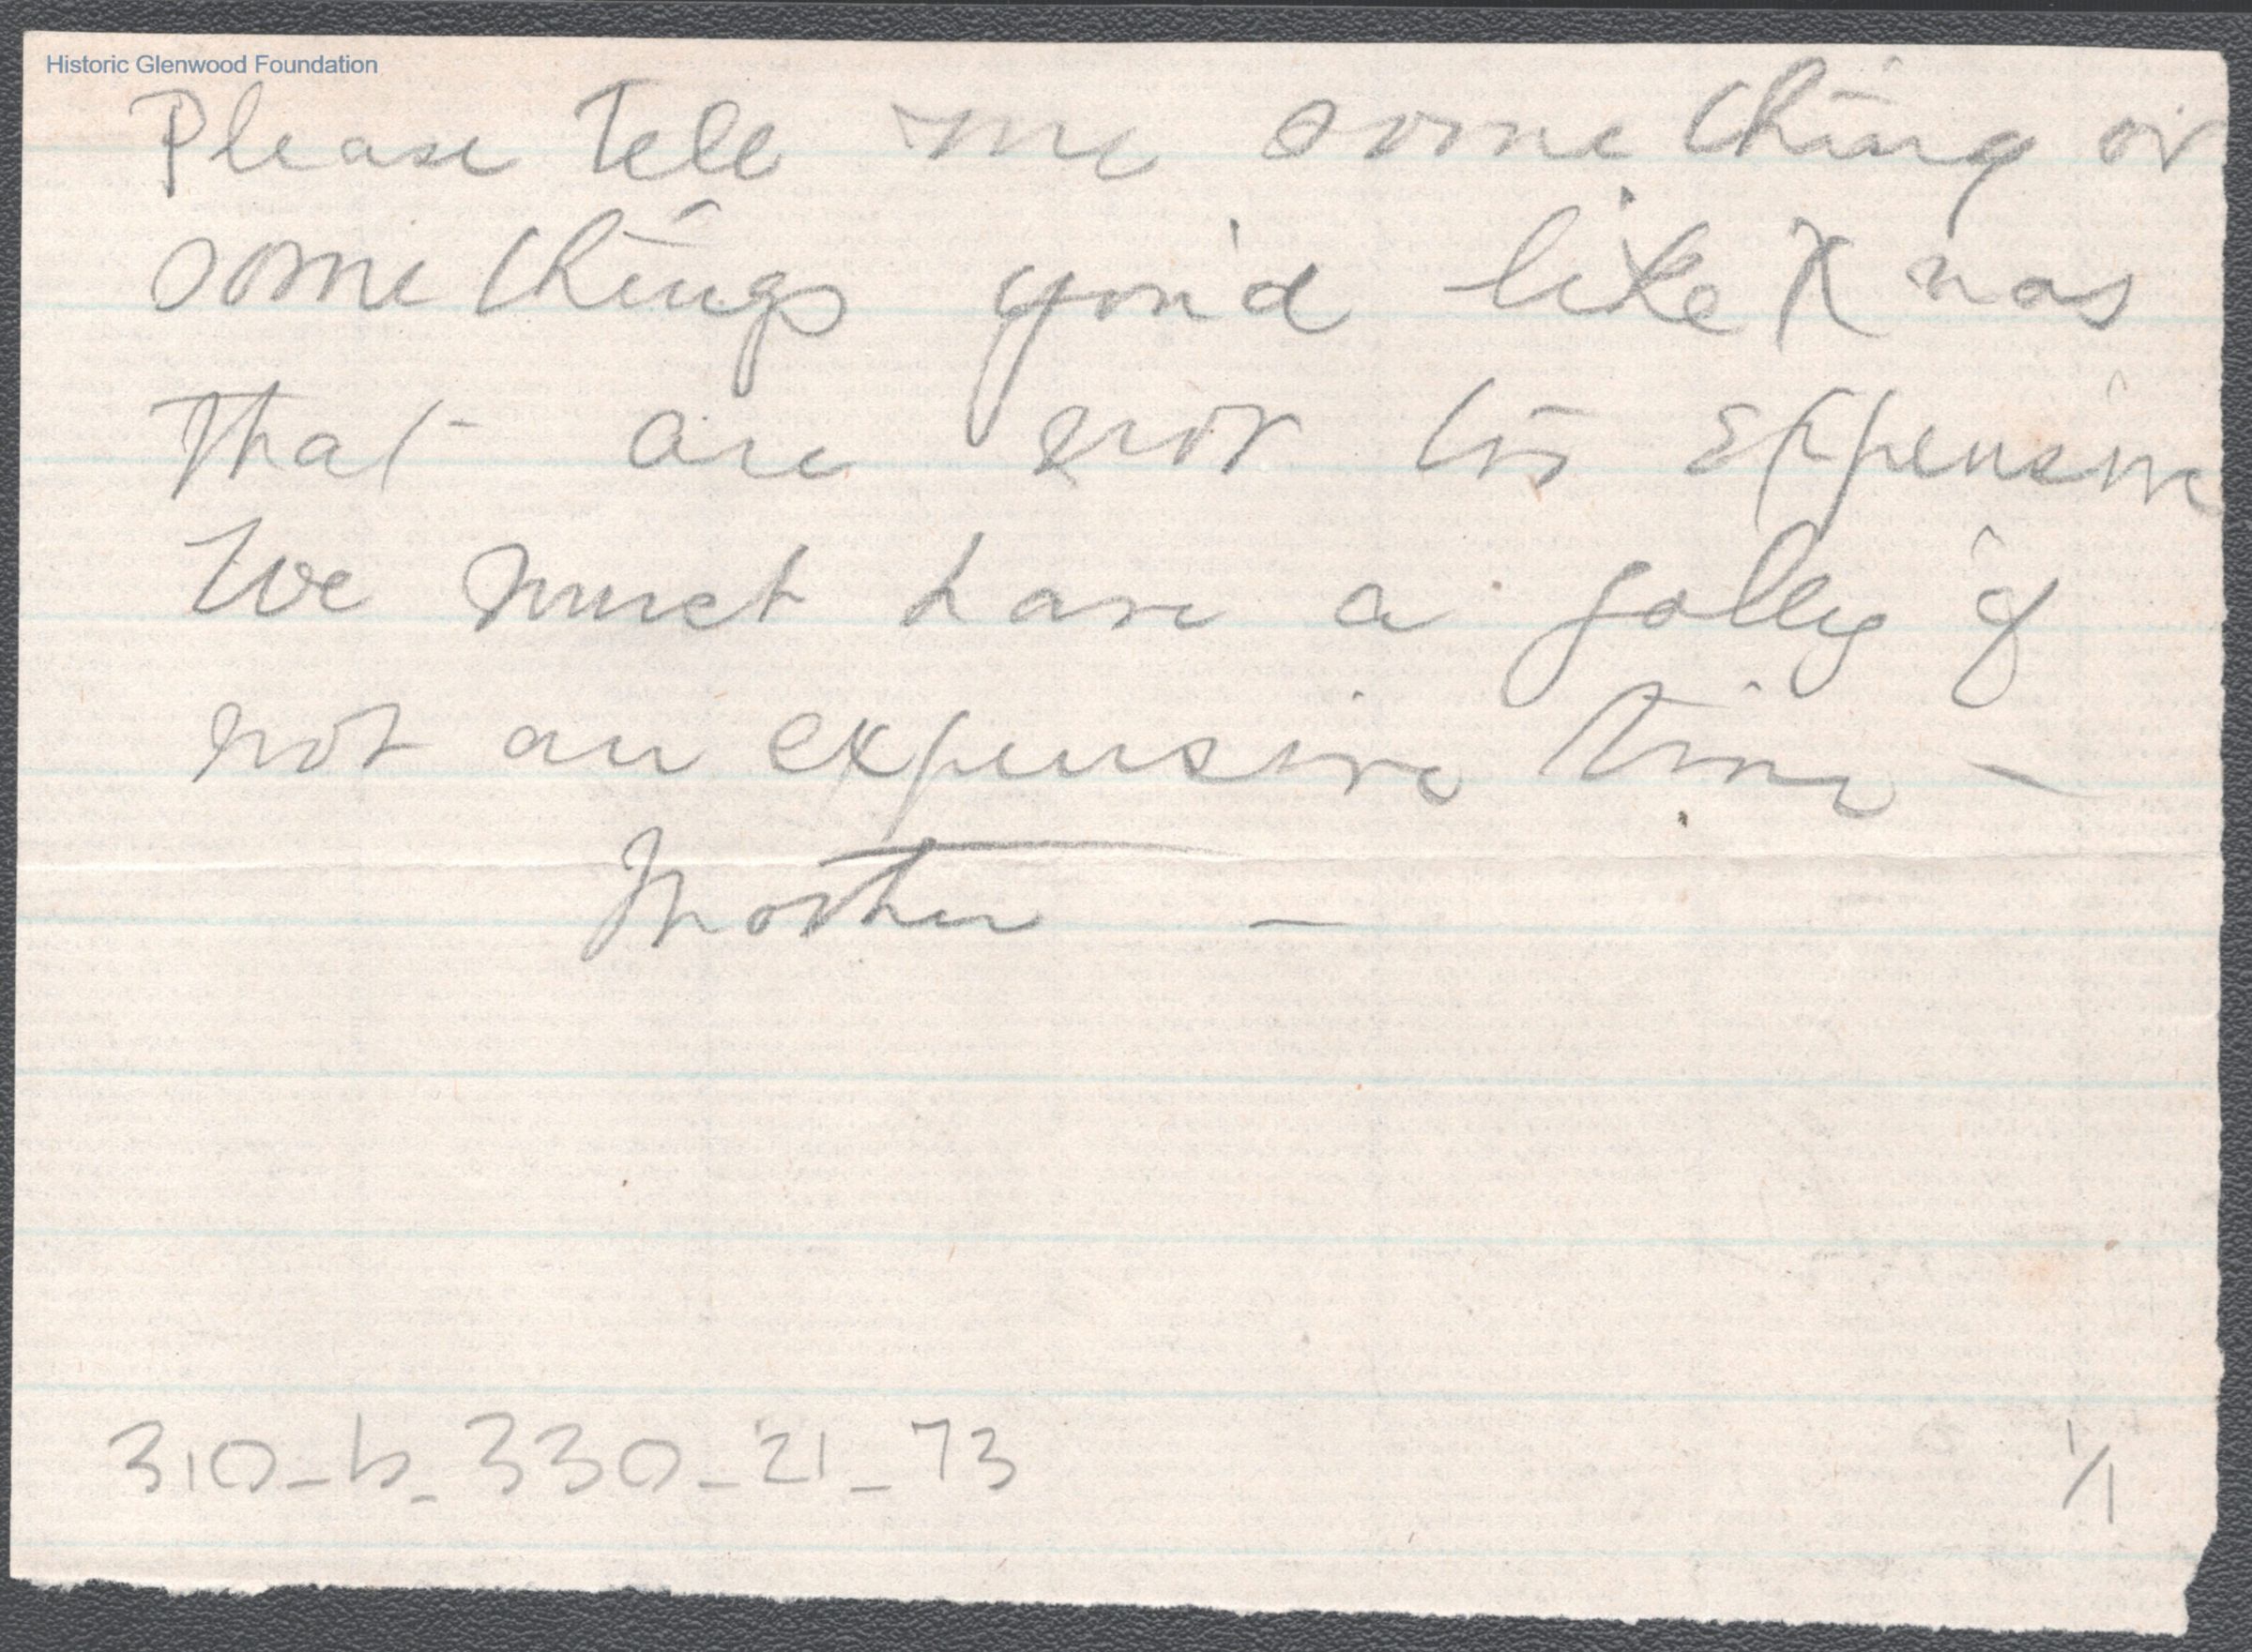 Historic Glenwood Foundation
Please tell me something or
some things you'd like Xmas
that are not too expensive
We must have a jolly if
not an expensive time —
Mother —
310_b_330_21_73
1/1